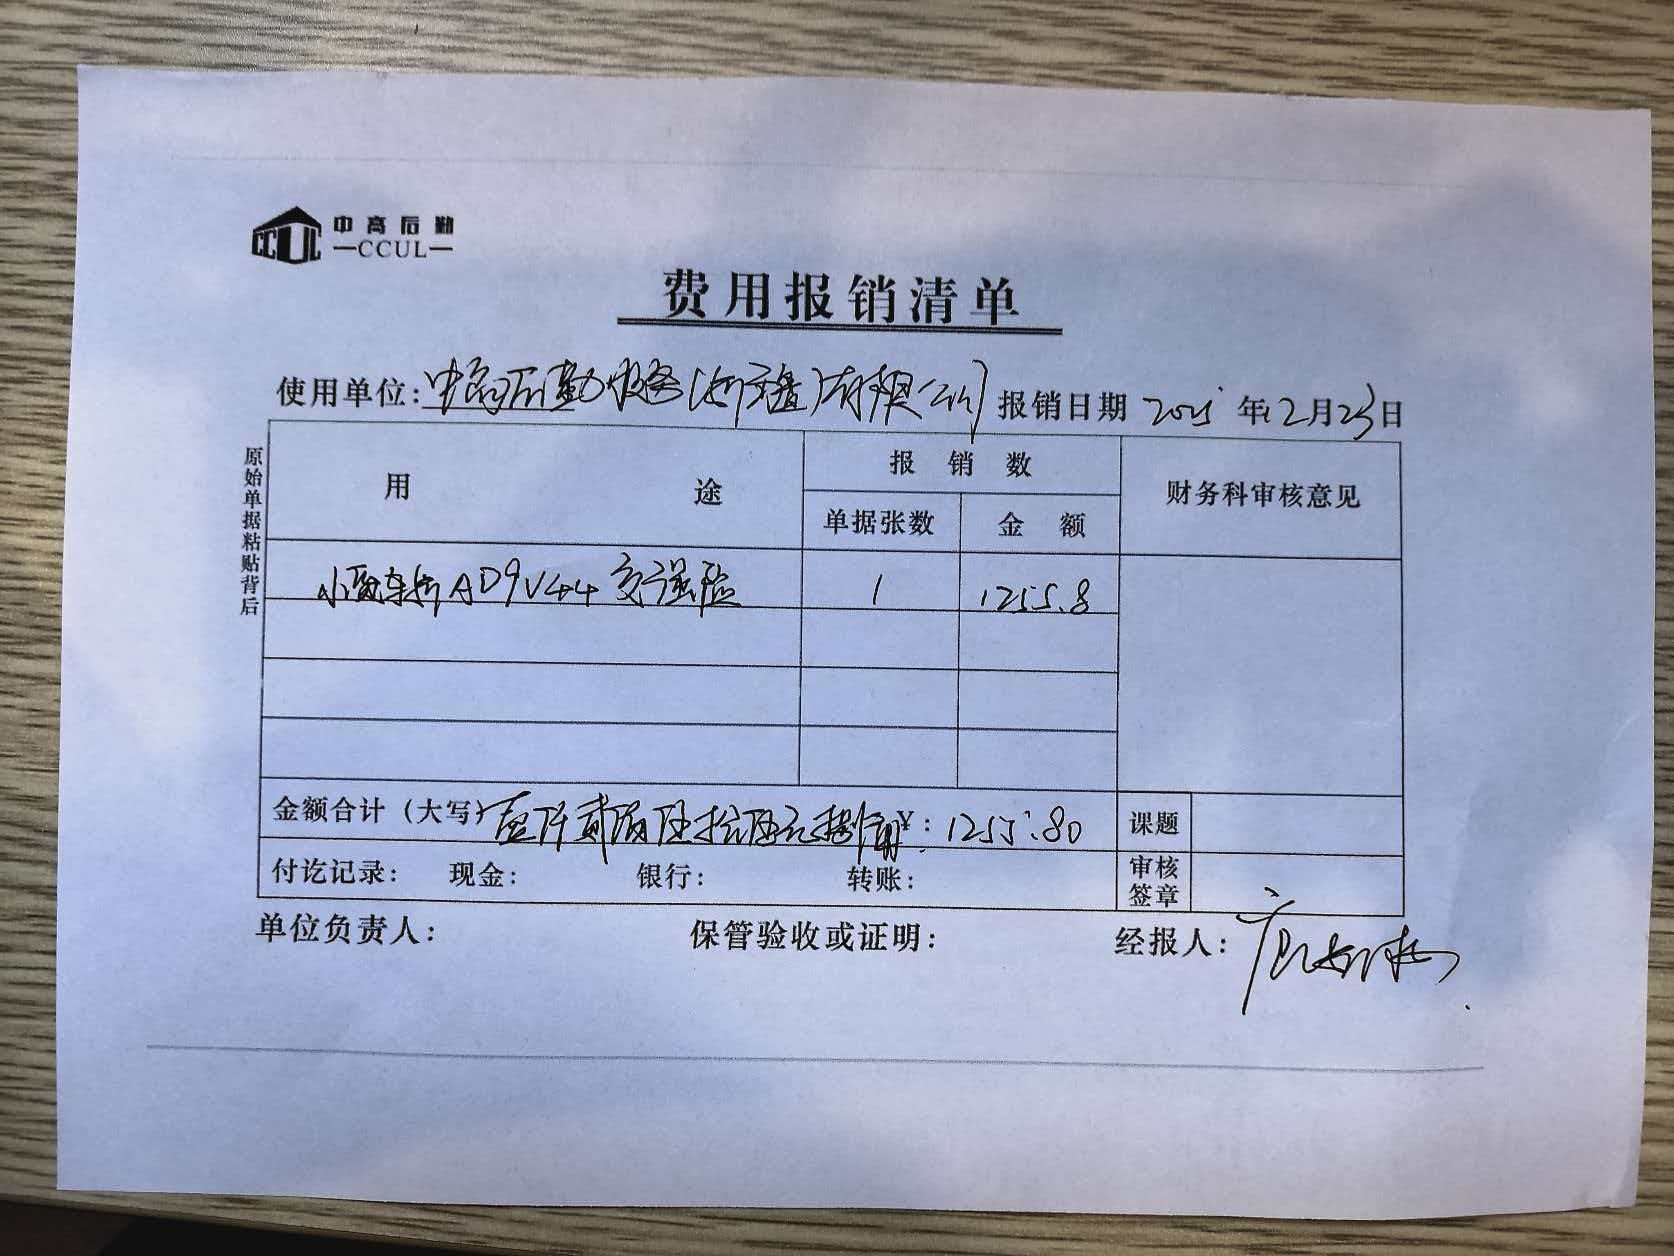 中高后勤
CCUL
费用报销清单
使用单位: 中高后勤服务( )有限公司 报销日期 2025 年 12 月 23 日
原始单据粘贴背后
用 途
报 销 数
财务科审核意见
单据张数 金 额
AD9V44 交强险 1 1255.8
金额合计(大写) 壹仟贰佰伍拾伍元捌角 ¥: 1255.80 课题
付讫记录: 现金: 银行: 转账: 审核签章
单位负责人: 保管验收或证明: 经报人: